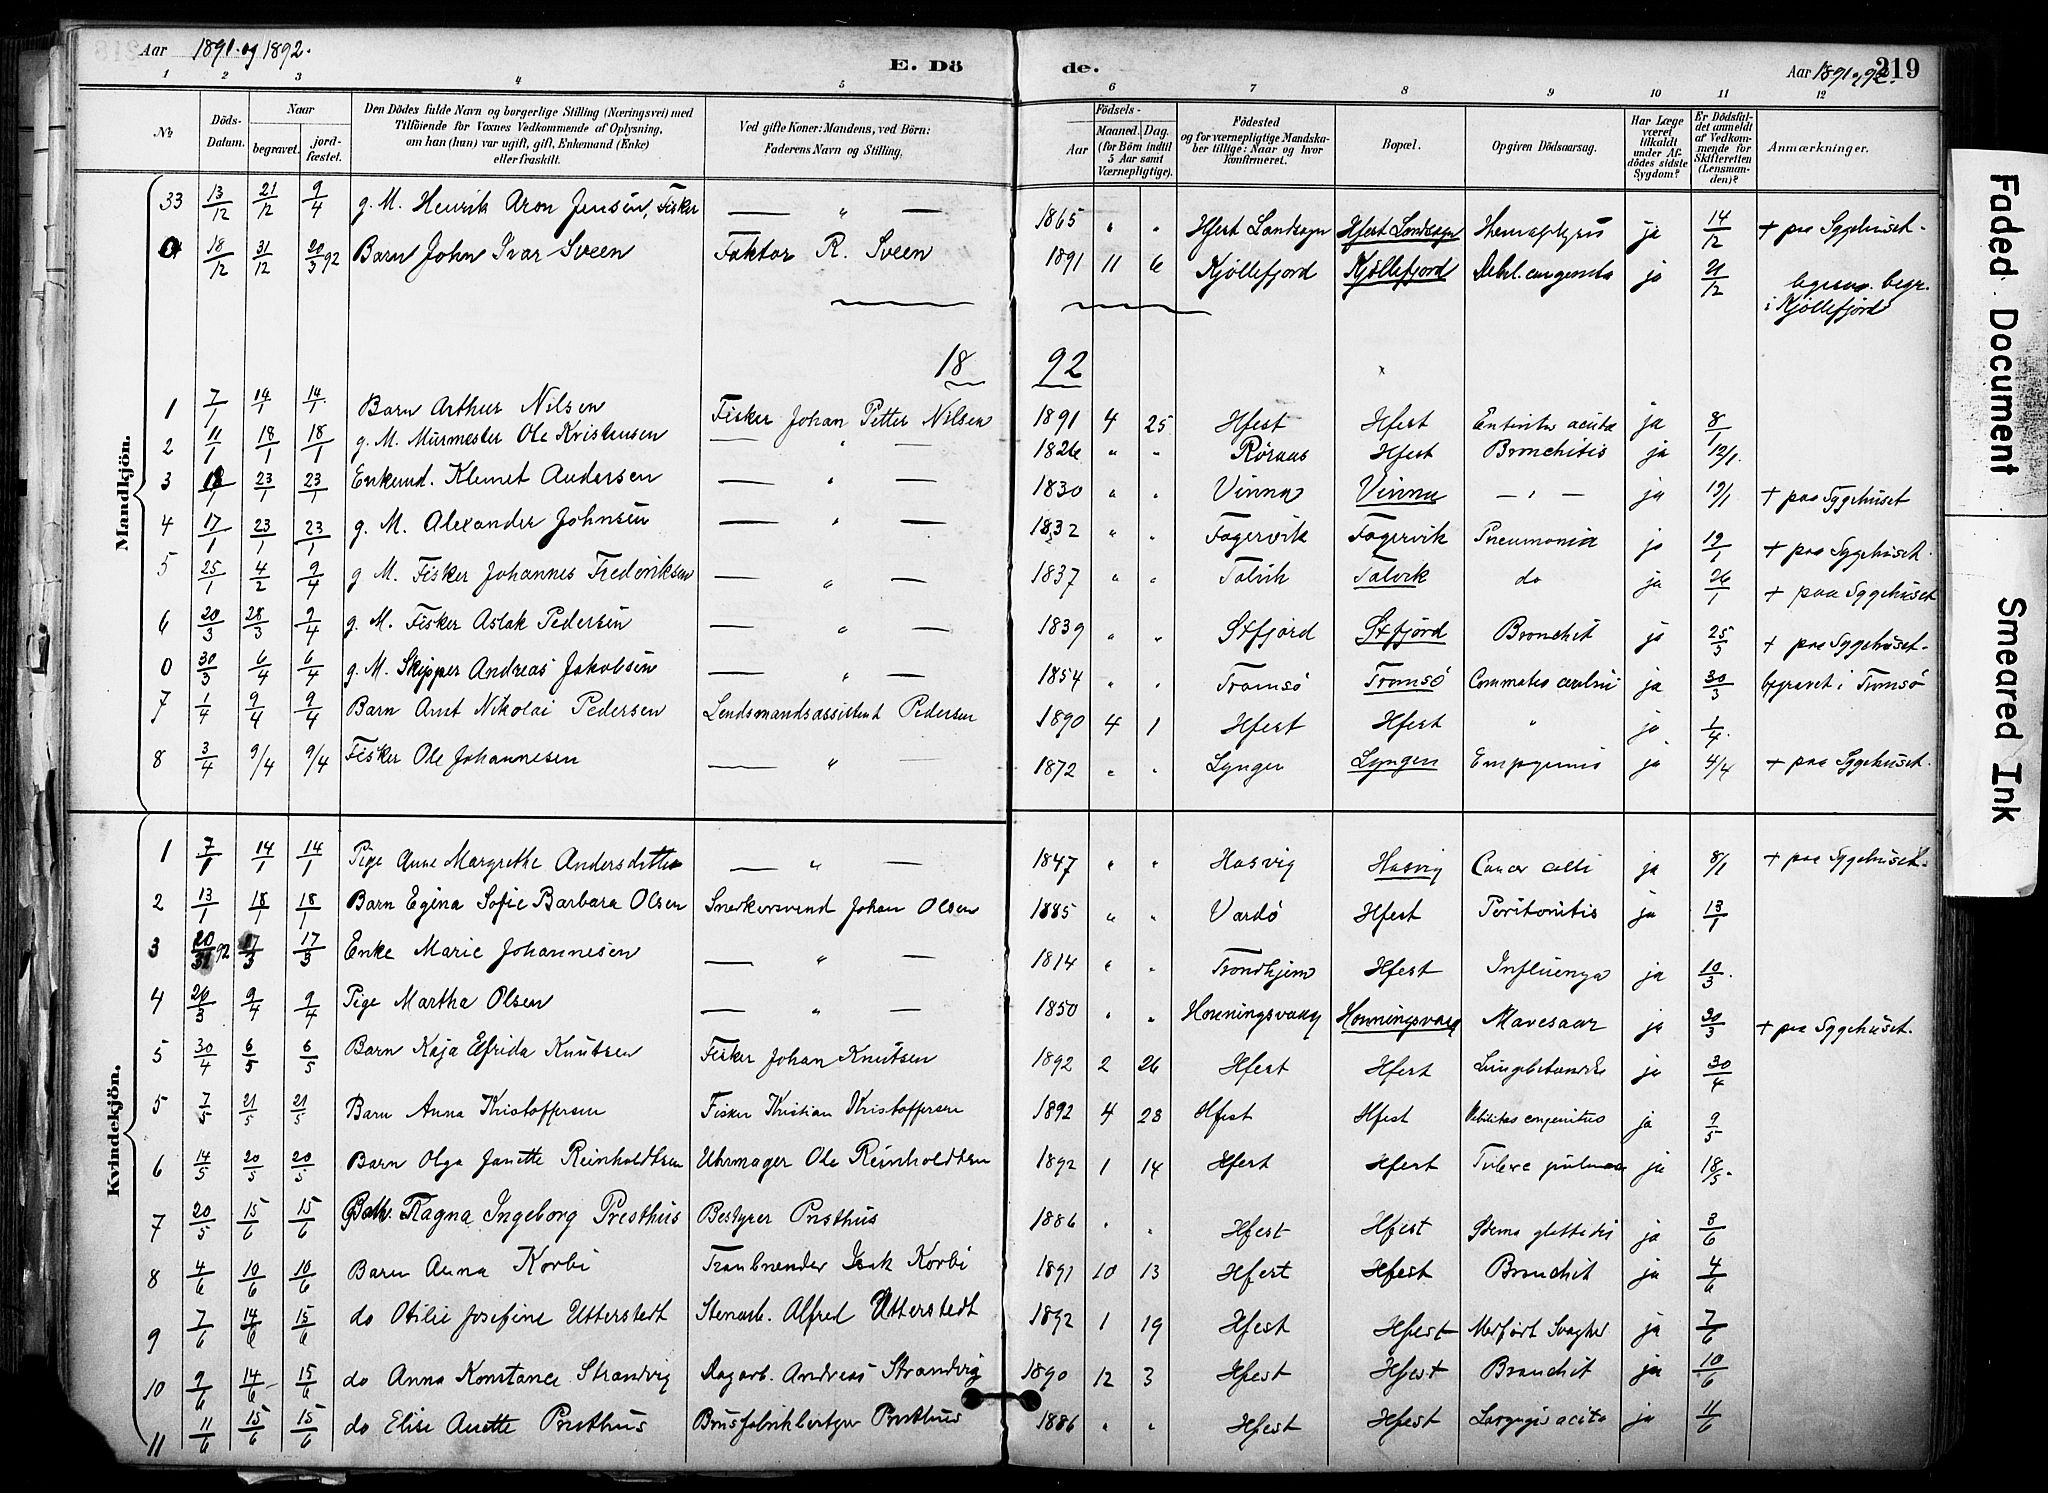 Aar 1891 og 1892. E. Dö de. Aar 1891 og 92. 219
1 2 3 4 5 6 7 8 9 10 11 12
No Döds-Datum. Naar begravet. jordfæstet. Den Dödes fulde Navn og borgerlige Stilling (Næringsvei) med Tilföiende for Voxnes Vedkommende af Oplysning, om han (hun) var ugift, gift, Enkemand (Enke) eller fraskilt. Ved gifte Koner: Mandens, ved Börn: Faderens Navn og Stilling. Födsels- Aar Maaned. Dag. (for Börn indtil 5 Aar samt Værnepligtige). Födested og for værnepligtige Mandskaber tillige: Naar og hvor konfirmeret. Bopæl. Opgiven Dödsaarsag. Har Læge været tilkaldt under Afdödes sidste Sygdom? Er Dödsfaldet anmeldt af Vedkommende for Skifteretten (Lensmanden)? Anmærkninger.
Mandkjön.
33 13/12 21/12 9/4 g. M. Henrik Aron Jensen, Fisker — " — 1865 " " Hfest Landsogn Hfest Landsogn ja 14/12 + paa Sygehuset.
0 18/12 31/12 20/3 92 Barn John Ivar Sveen Faktor R. Sveen 1891 11 6 Kjöllefjord Kjöllefjord ja 21/12 begr. i Kjöllefjord
18 92
1 7/1 14/1 14/1 Barn Arthur Nilsen Fisker Johan Petter Nilsen 1891 4 25 Hfest Hfest ja 8/1
2 11/1 18/1 18/1 g. M. Murmester Ole Kristensen — " — 1826 " " Röraas Hfest Bronchitis ja 12/1.
3 18/1 23/1 23/1 Enkemd. Klemet Andersen — " — 1830 " " Vinna Vinna — " — ja 19/1 + paa Sygehuset
4 17/1 23/1 23/1 g. M. Alexander Johnsen — " — 1832 " " Fagervik Fagervik Pneumonia ja 19/1 + paa Sygehuset.
5 25/1 4/2 9/4 g M. Fisker Johannes Frederiksen — " — 1837 " " Talvik Talvik do ja 26/1 + paa Sygehuset
6 20/3 28/3 9/4 g. M. Fisker Aslak Pedersen — " — 1839 " " Stfjord Stfjord Bronchit ja 25/3 + paa Sygehuset.
0 30/3 6/4 6/4 g. M. Skipper Andreas Jakobsen — " — 1854 " " Tromsö Tromsö ja 30/3 begravet i Tromsö
7 1/4 9/4 9/4 Barn Arnt Nikolai Pedersen Lendsmandsassistent Pedersen 1890 4 1 Hfest Hfest " ja 1/4
8 3/4 9/4 9/4 Fisker Ole Johannesen — " — 1872 " " Lyngen Lyngen ja 4/4 + paa Sygehuset.
Kvindekjön.
1 7/1 14/1 14/1 Pige Anne Margrethe Andersdatter — " — 1847 " " Hasvig Hasvig ja 8/1 + paa Sygehuset.
2 13/1 18/1 18/1 Barn Egina Sofie Barbara Olsen Snedkersvend Johan Olsen 1885 " " Vardö Hfest Peritonitis ja 13/1
3 17/3 17/3 Enke Marie Johannesen — " — 1814 " " Trondhjem Hfest Influenza ja 10/3.
4 26/3 9/4 9/4 Pige Martha Olsen — " — 1850 " " Honningsvaag Honningsvaag Mavesaar ja 30/3 + paa Sygehuset.
5 30/4 6/5 6/5 Barn Kaja Elfrida Knutsen Fisker Johan Knutsen 1892 2 26 Hfest Hfest Lungebetændelse ja 30/4
5 7/5 21/5 21/5 Barn Anna Kristoffersen Fisker Kristian Kristoffersen 1892 4 28 Hfest Hfest ja 9/5
6 14/5 20/5 20/5 Barn Olga Janette Reinholdtsen Uhrmager Ole Reinholdtsen 1892 1 14 Hfest Hfest ja 18/5.
7 20/5 15/6 15/6 Ragna Ingeborg Presthus Bestyrer Presthus 1886 " " Hfest Hfest ja 3/6
8 4/6 10/6 10/6 Barn Anna Korbi Tranbrænder Isak Korbi 1891 10 13 Hfest Hfest Bronchit ja 4/6
9 7/6 14/6 15/6 do Otilie Josefine Utterstedt Stenarb. Alfred Utterstedt 1892 1 19 Hfest Hfest Medfört Svaghed ja 7/6
10 9/6 14/6 15/6 do Anna Konstance Strandvig Dagarb. Andreas Strandvig 1890 12 3 Hfest Hfest Bronchit ja 10/6
11 11/6 15/6 15/6 do Elise Anette Presthus Brusfabrikbestyrer Presthus 1886 " " Hfest Hfest ja 11/6
Faded Document
Smeared Ink